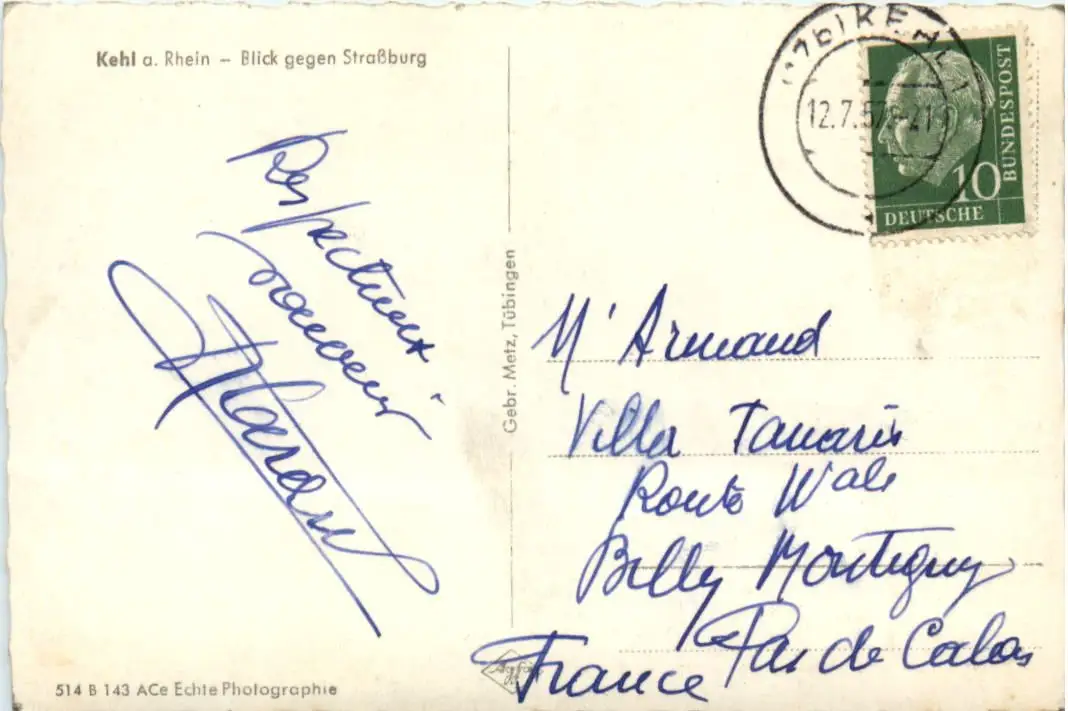 Kehl a. Rhein – Blick gegen Straßburg
Respectueux
souvenir
Gebr. Metz, Tübingen
KEHL
12.7.57
BUNDESPOST
10
DEUTSCHE
M' Armand
Villa Tamaris
Route
Billy Montigny
Pas de Calais
France
514 B 143 ACe Echte Photographie